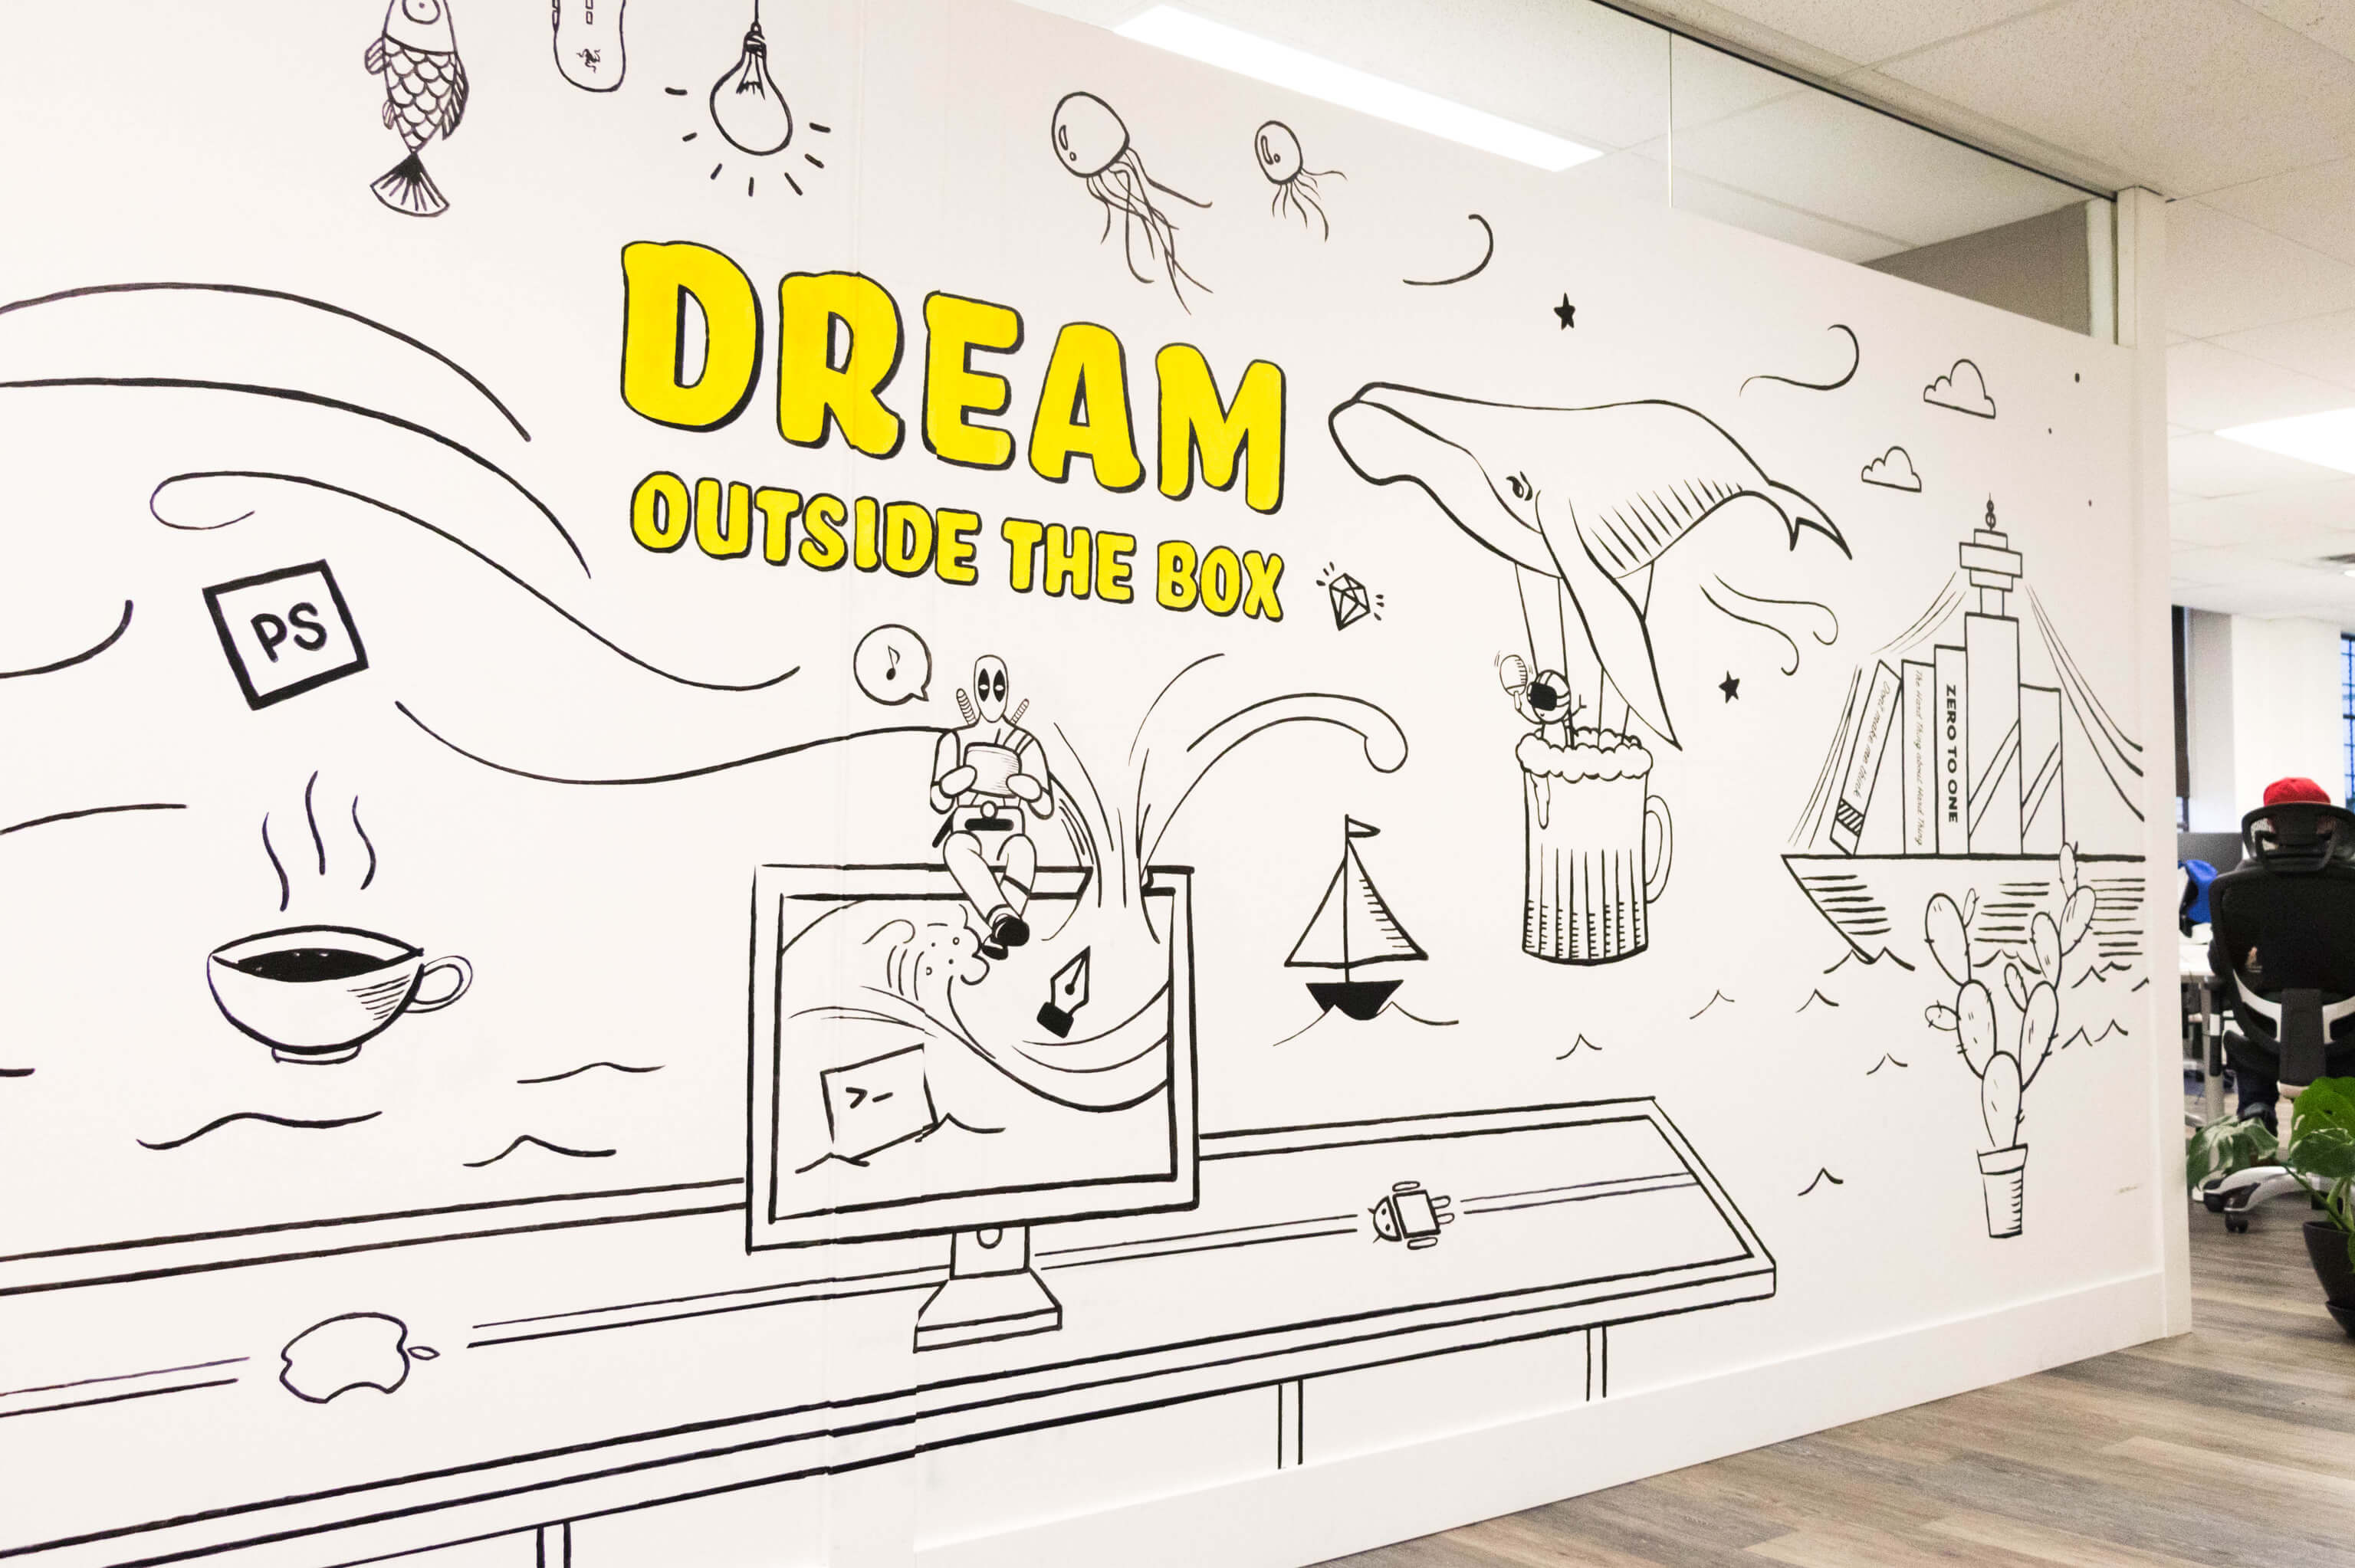 DREAM
OUTSIDE THE BOX
PS
>_
Don't make me think
The Hard Thing about Hard Things
ZERO TO ONE